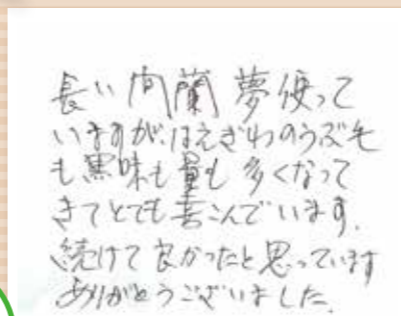 長い間蘭夢使って
いますが、はえぎわのうぶ毛
も黒味も量も多くなって
きてとても喜こんでいます。
続けて良かったと思っています
ありがとうございました。